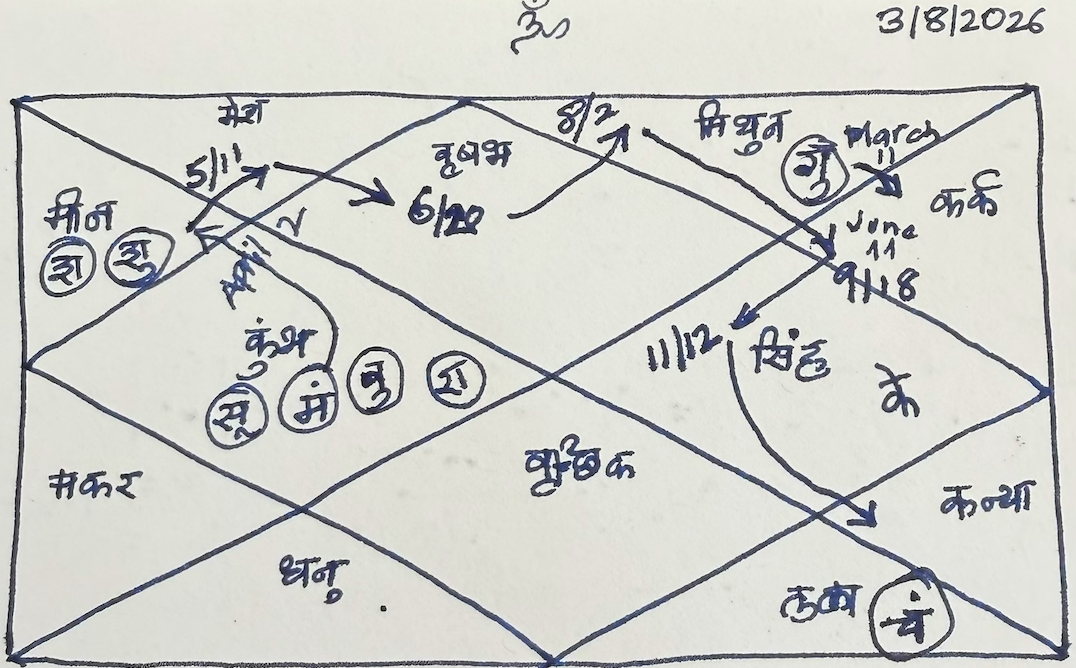 ॐ
3/8/2026
मेष
8/2
मिथुन
March
11
5/11
वृषभ
गु
कर्क
मीन
6/20
June
11
श शु
April 2
9/18
कुंभ
11/12 सिंह
सू मं बु रा
के
मकर
वृश्चिक
कन्या
धनु
तुला चं